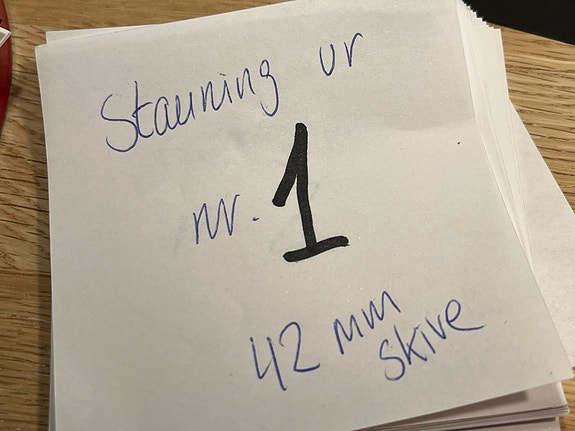 Stauning ur
nr. 1
42 mm
skive